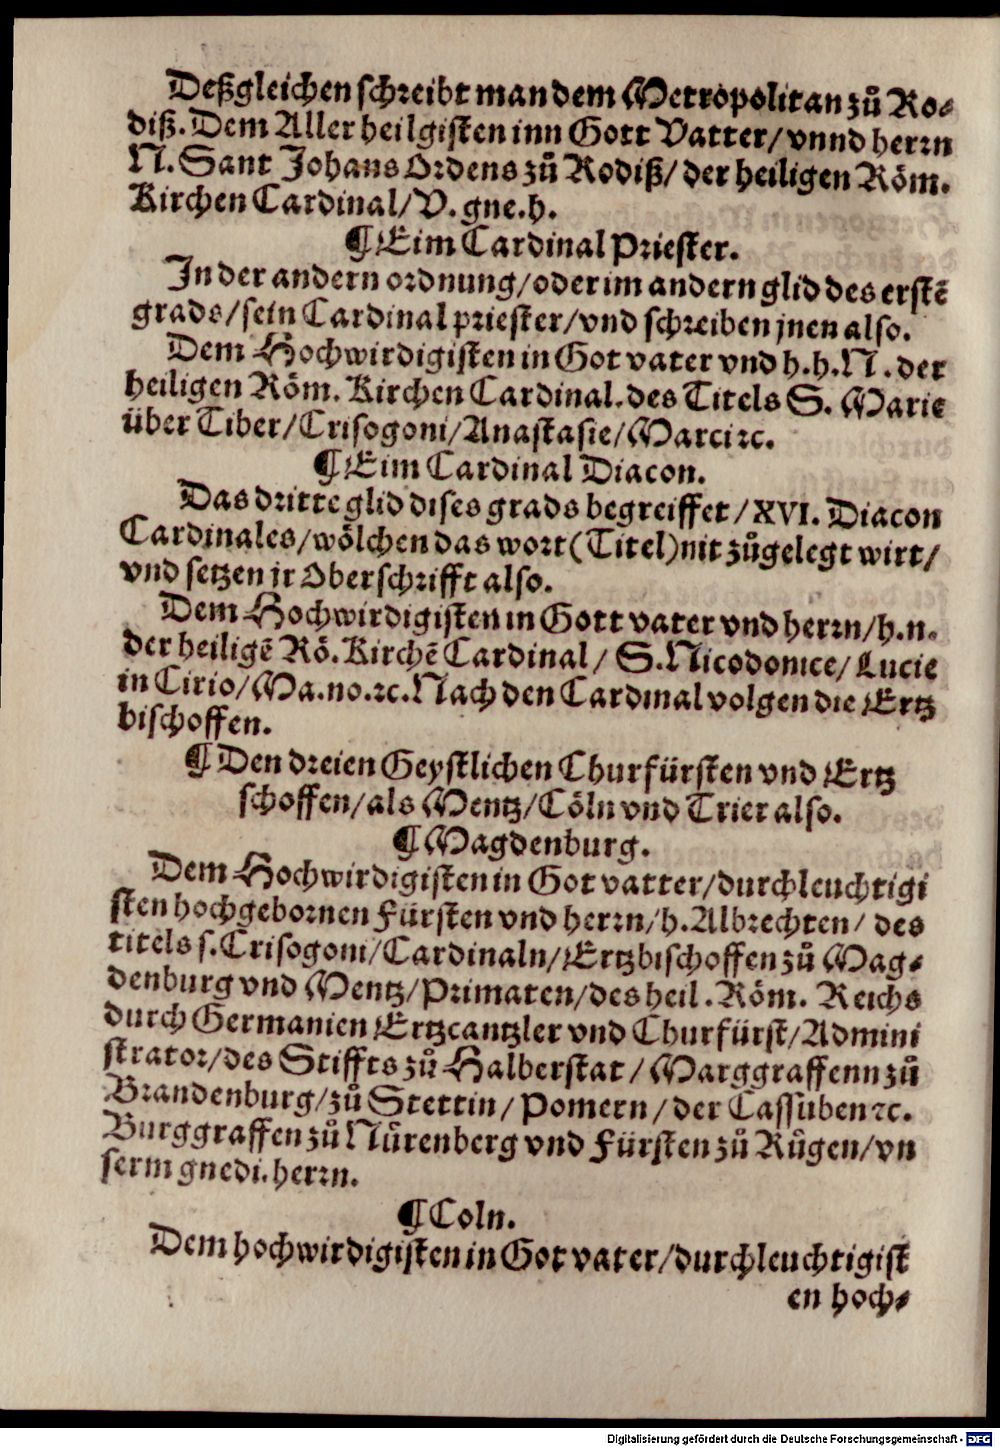 Deßgleichen schreibt man dem Metropolitan zů Ro⸗
diß. Dem Aller heilgisten inn Gott Vatter/ vnnd herrn
N. Sant Johans Ordens zů Rodiß/ der heiligen Röm.
Kirchen Cardinal/ V. gne. h.
¶ Eim Cardinal Priester.
In der andern ordnung/ oder im andern glid des erstē
grads/ sein Cardinal priester/ vnd schreiben jnen also.
Dem Hochwirdigisten in Got vater vnd h. h. N. der
heiligen Röm. Kirchen Cardinal. des Titels S. Marie
über Tiber/ Crisogoni/ Anastasie/ Marci ꝛc.
¶ Eim Cardinal Diacon.
Das dritte glid dises grads begreiffet/ XVI. Diacon
Cardinales/ wölchen das wort (Titel) nit zůgelegt wirt/
vnd setzen jr Oberschrifft also.
Dem Hochwirdigisten in Gott vater vnd herrn/ h. n.
der heiligē Rö. Kirchē Cardinal/ S. Nicodomce/ Lucie
in Cirio/ Ma. no. ꝛc. Nach den Cardinal volgen die Ertz
bischoffen.
¶ Den dreien Geystlichen Churfürsten vnd Ertz
schoffen/ als Mentz/ Cöln vnd Trier also.
¶ Magdenburg.
Dem Hochwirdigisten in Got vatter/ durchleuchtigi
sten hochgebornen Fürsten vnd herrn/ h. Albrechten/ des
titels s. Crisogoni/ Cardinaln/ Ertzbischoffen zů Mag⸗
denburg vnd Mentz/ Primaten/ des heil. Röm. Reichs
durch Germanien Ertzcantzler vnd Churfürst/ Admini
strator/ des Stiffts zů Halberstat/ Marggraffenn zů
Brandenburg/ zů Stettin/ Pomern/ der Cassuben ꝛc.
Burggraffen zů Nůrenberg vnd Fürsten zů Růgen/ vn
serm gnedi. herrn.
¶ Coln.
Dem hochwirdigisten in Got vater/ durchleuchtigist
en hoch⸗
Digitalisierung gefördert durch die Deutsche Forschungsgemeinschaft - DFG